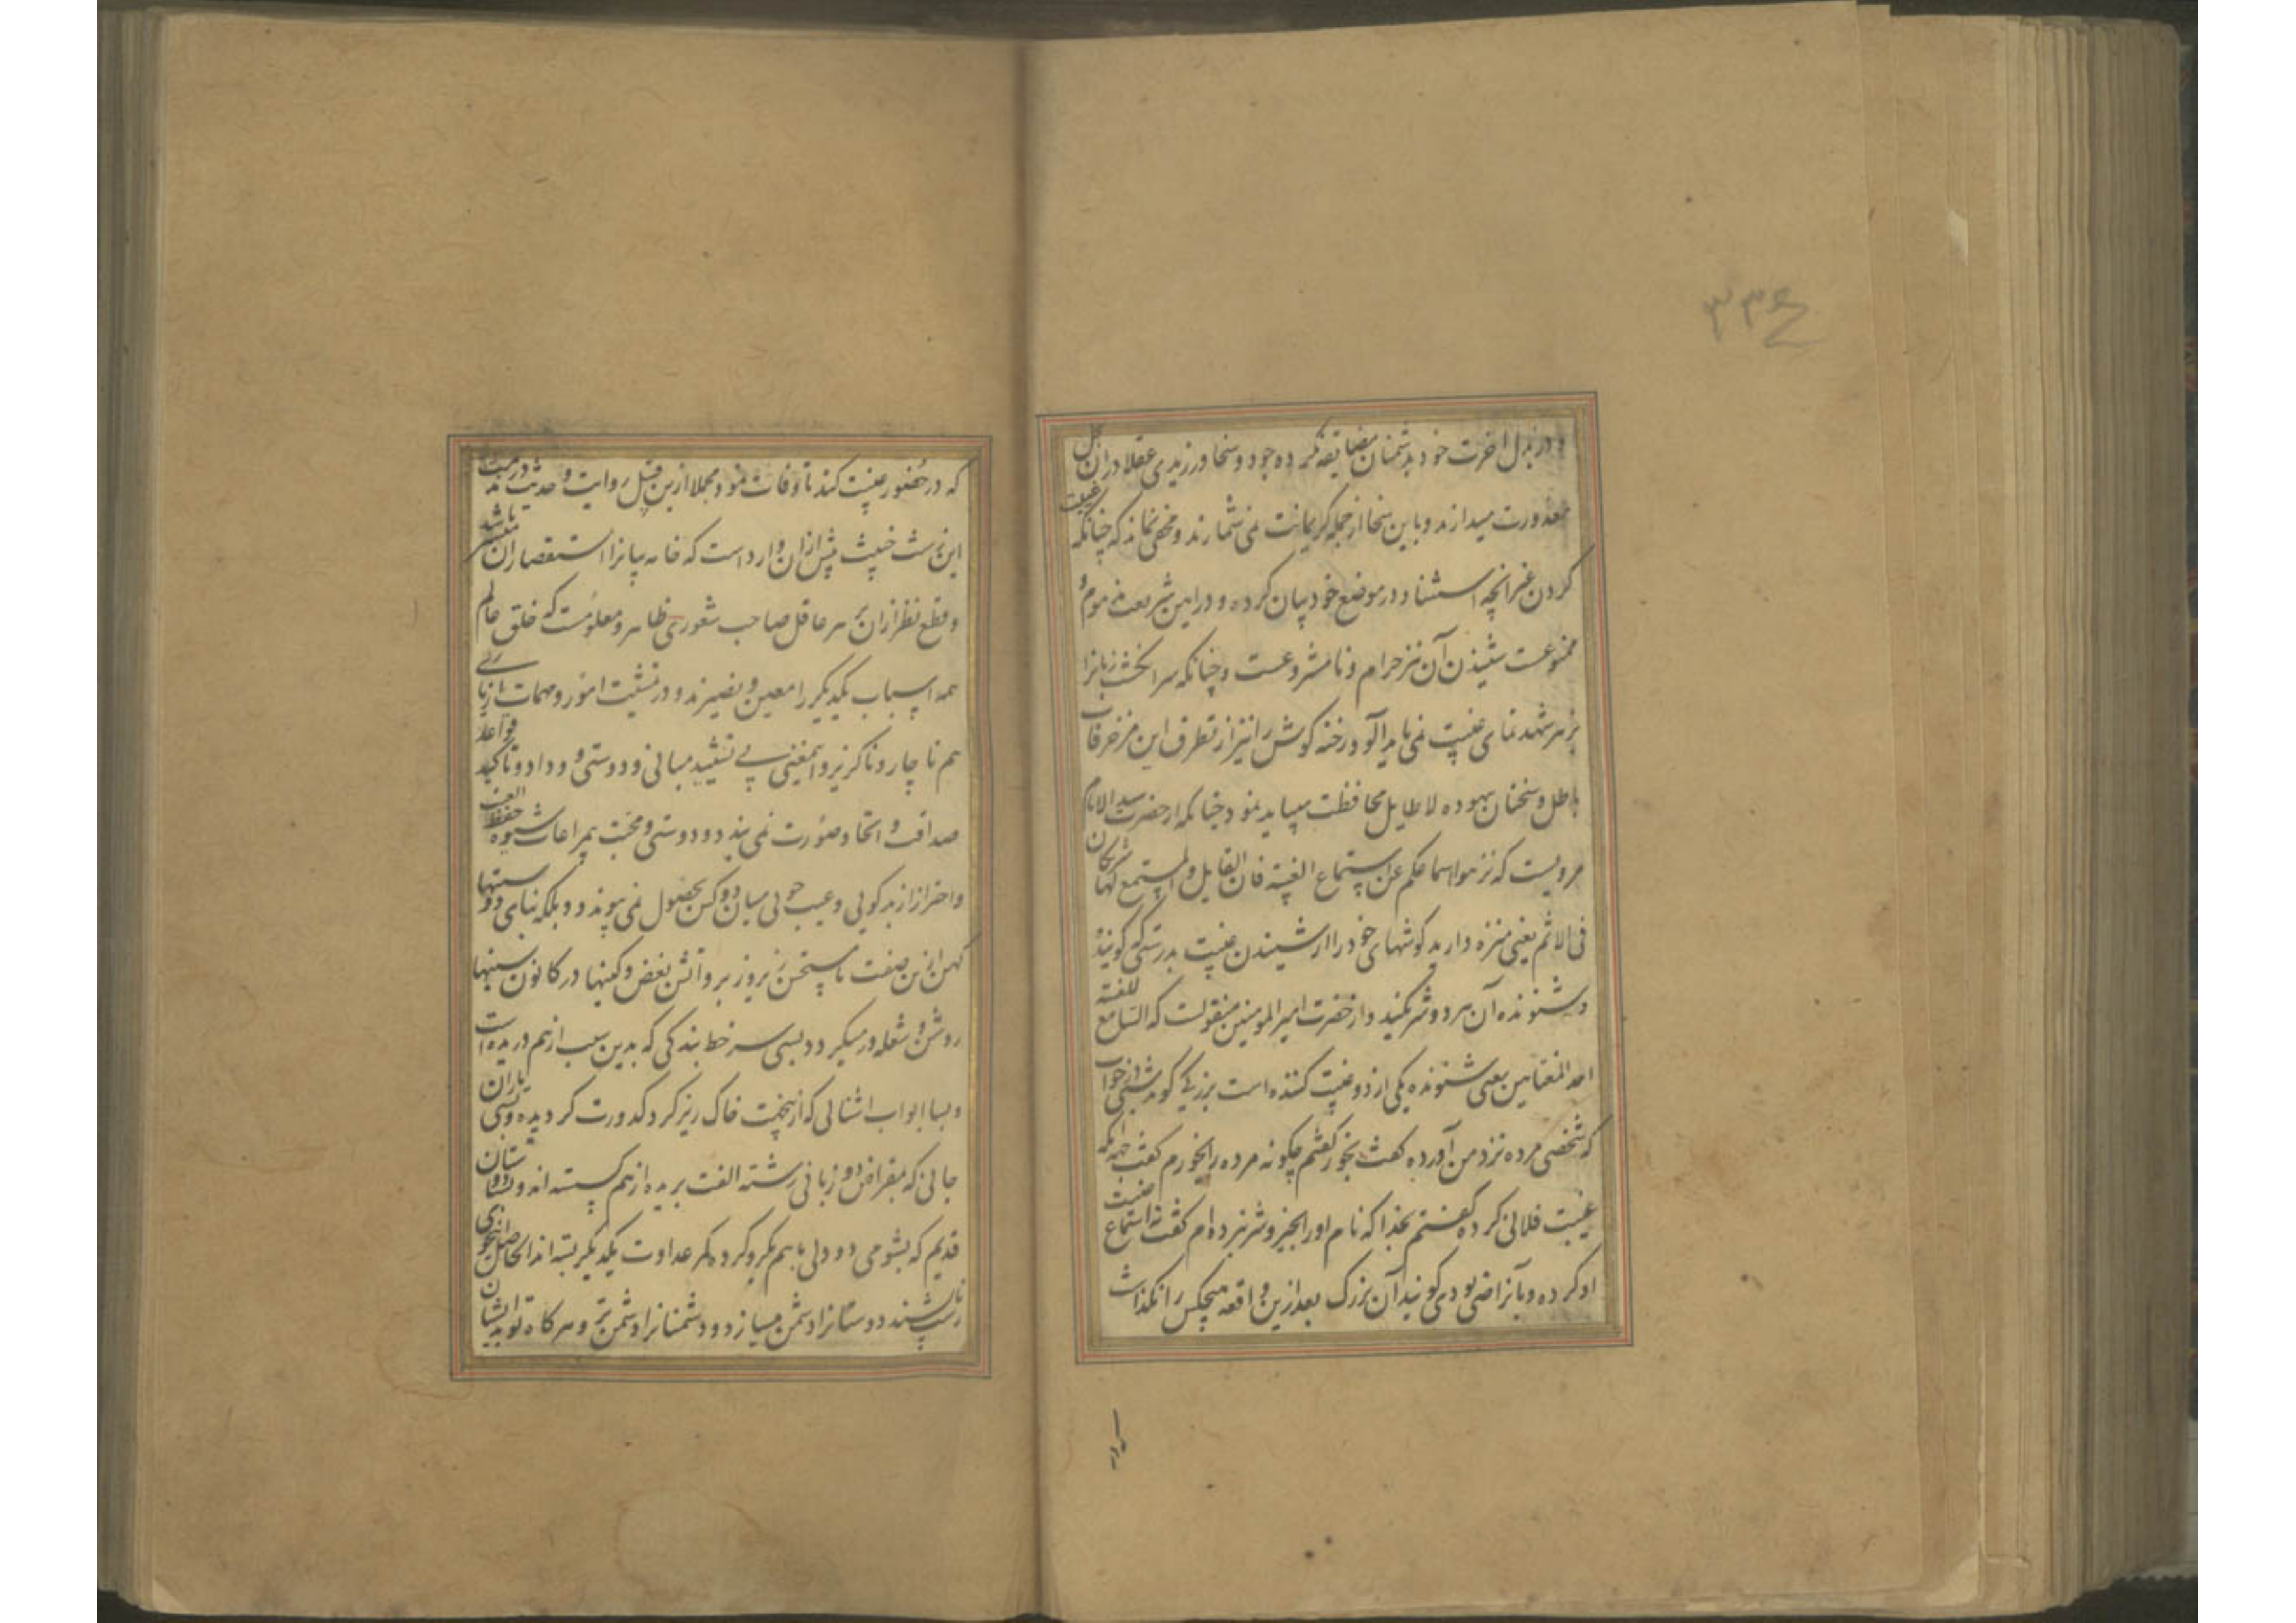 ۳۳۶
و در بذل اخرت خود بدشمنان مضایقه نکرده جود و سخا ورزیدی عقلا دران بذل
معذورت میدارند و باین سخا از جمله کریمانت نمی شمارند و مخفی نماند که چنانکه غیبت
کردن غیر انچه استثنا و در موضع خود بیان کرده و در این شریعت مذموم و
ممنوعست شنیدن آن نیز حرام و نامشروعست و چنانکه سرانگشت زبانرا
بزهر شهدنمای غیبت نمی باید آلود رخنه کوش را نیز از تطرق این مزخرفات
باطل و سخنان بیهوده لاطایل محافظت میباید نمود چنانکه از حضرت سید الانام
مرویست که نزهوا اسماعکم عن استماع الغیبة فان القایل و المستمع لها شریکان
فی الاثم یعنی منزه دارید کوشهای خود را از شنیدن غیبت بدرستی که کوینده
و شنونده آن هر دو شریکند و از حضرت امیر المومنین منقولست که السامع للغیبة
احد المغتابین یعنی شنونده یکی از دو غیبت کننده است بزرکی کوید شبی در خواب
که شخصی مرده نزد من آورده کفت بخور کفتم چکونه مرده را بخورم کفت بجهة انکه
غیبت فلانی کرده کفتم بخدا که نام او را بخیر و شر نبرده ام کفت نه استماع غیبت
او کرده و بآن راضی بودی کویند آن بزرک بعد ازین واقعه هیچکس را نکذاشت
که در حضور غیبت کند تا وفات نمود مجملا ازین قبیل روایت و حدیث در مذمت
این زشت خبیث بیش از ان وارد است که خامه بیانرا استقصار ان میسر باشد
و قطع نظر از ان بر هر عاقل صاحب شعوری ظاهر و معلومست که خلق عالم
همه اسباب یکدیگر را معین و نصیرند و در تمشیت امور و مهمات از یاری
هم ناچار و ناکزیر و اینمعنی بی تشیید مبانی و دوستی و وداد و تاکید قواعد
صداقت و اتحاد صورت نمی بندد و دوستی و محبت بی مراعات شیوه حفظ الغیب
و احتراز از بدکویی و عیب جویی میان دو کس بحصول نمی پیوندد و بلکه بنای دوستیها
کهن ازین صفت ناپستحسن زیر و زبر و آتش بغض و کینها در کانون سینها
روشن و شعله ور میکردد و بسی سر خط بندکی که بدین سبب از هم دریده است
و بسا ابواب اشنائی که ازینجهت خاک ریز کرد کدورت کردیده و بسی یاران
جانی که بمقراض دو زبانی رشته الفت بریده از هم کسسته اند و بسا دوستان
قدیم که بشومی دو دلی باهم یکرو کرده کمر عداوت یکدیگر بسته اند الحاصل اینخوی
ناپسند دوستانرا دشمن میسازد و دشمنانرا دشمن تر و هر کاه تو بد ایشان